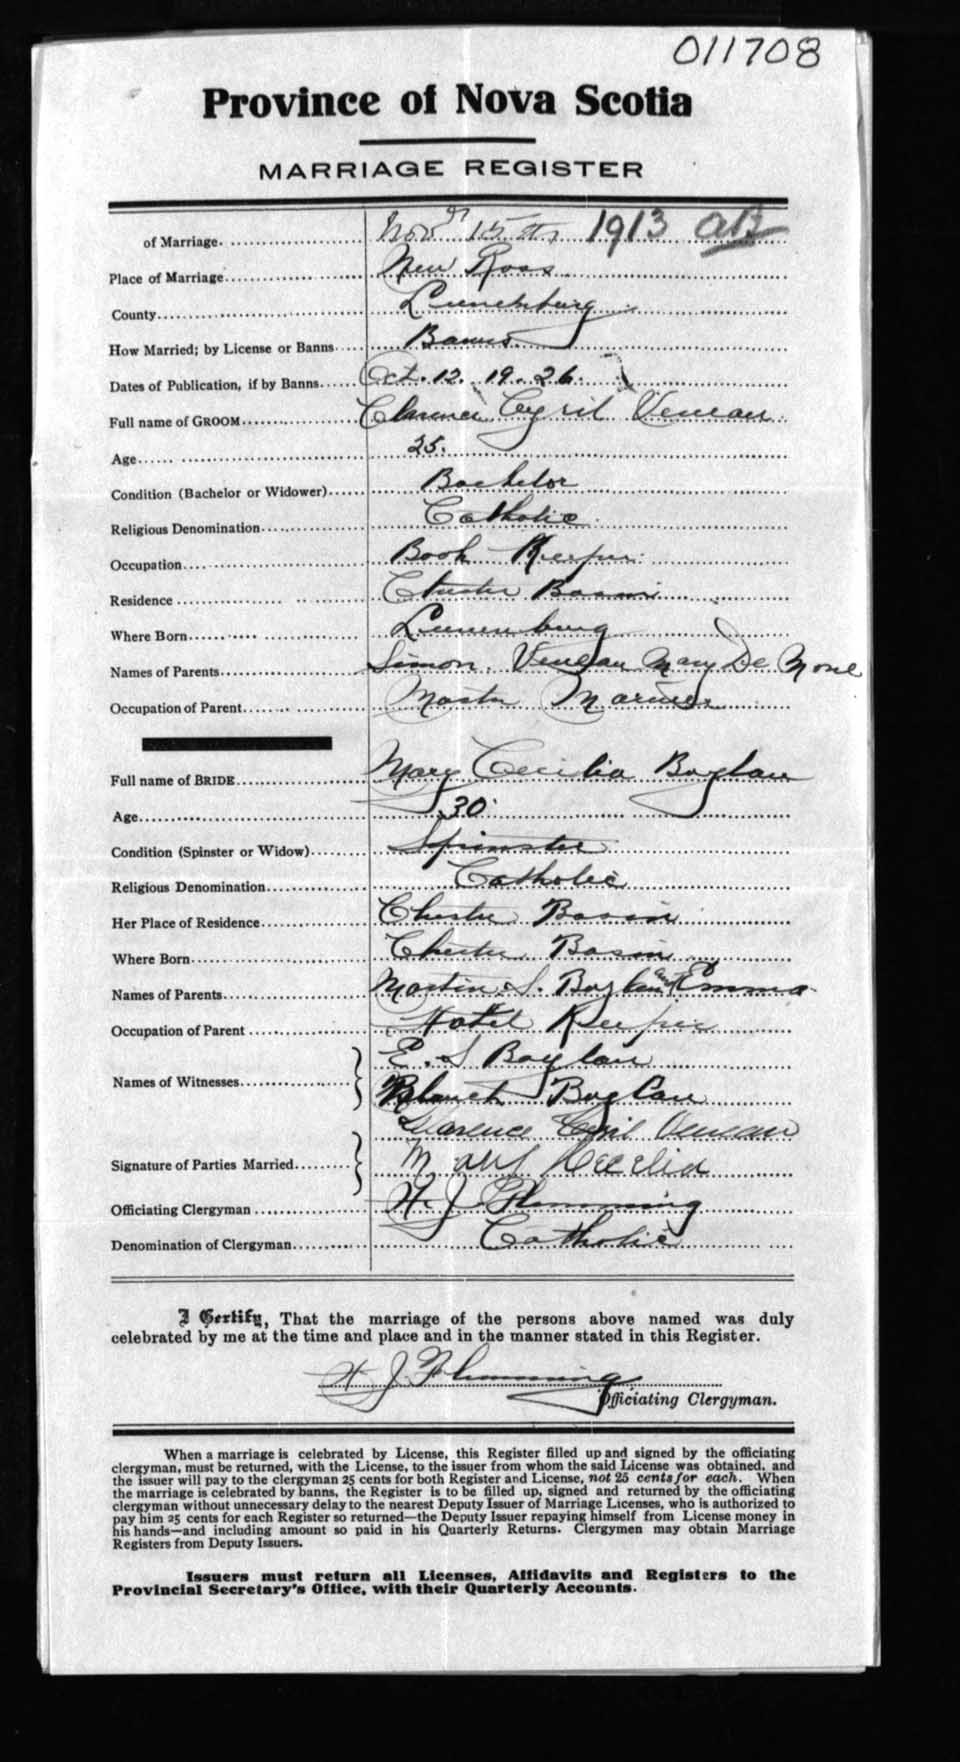 011708
Province of Nova Scotia
MARRIAGE REGISTER
of Marriage. Novr 15th 1913 AB
Place of Marriage New Ross
County Lunenburg
How Married; by License or Banns Banns
Dates of Publication, if by Banns Oct. 12. 19. 26.
Full name of GROOM Clarence Cyril Veneau
Age 25.
Condition (Bachelor or Widower) Bachelor
Religious Denomination Catholic
Occupation Book Keeper
Residence Chester Basin
Where Born Lunenburg
Names of Parents Simon Veneau Mary De Mone
Occupation of Parent Master Mariner
Full name of BRIDE Mary Cecilia Boylan
Age 30
Condition (Spinster or Widow) Spinster
Religious Denomination Catholic
Her Place of Residence Chester Basin
Where Born Chester Basin
Names of Parents Martin S. Boylan and Emma
Occupation of Parent Hotel Keeper
E. S Boylan
Names of Witnesses Blanch Boylan
Clarence Cyril Veneau
Signature of Parties Married Mary Cecelia
Officiating Clergyman H. J Flemming
Denomination of Clergyman Catholic
I Certify, That the marriage of the persons above named was duly
celebrated by me at the time and place and in the manner stated in this Register.
H J Flemming
Officiating Clergyman.
When a marriage is celebrated by License, this Register filled up and signed by the officiating
clergyman, must be returned, with the License, to the issuer from whom the said License was obtained, and
the issuer will pay to the clergyman 25 cents for both Register and License, not 25 cents for each. When
the marriage is celebrated by banns, the Register is to be filled up, signed and returned by the officiating
clergyman without unnecessary delay to the nearest Deputy Issuer of Marriage Licenses, who is authorized to
pay him 25 cents for each Register so returned—the Deputy Issuer repaying himself from License money in
his hands—and including amount so paid in his Quarterly Returns. Clergymen may obtain Marriage
Registers from Deputy Issuers.
Issuers must return all Licenses, Affidavits and Registers to the
Provincial Secretary's Office, with their Quarterly Accounts.